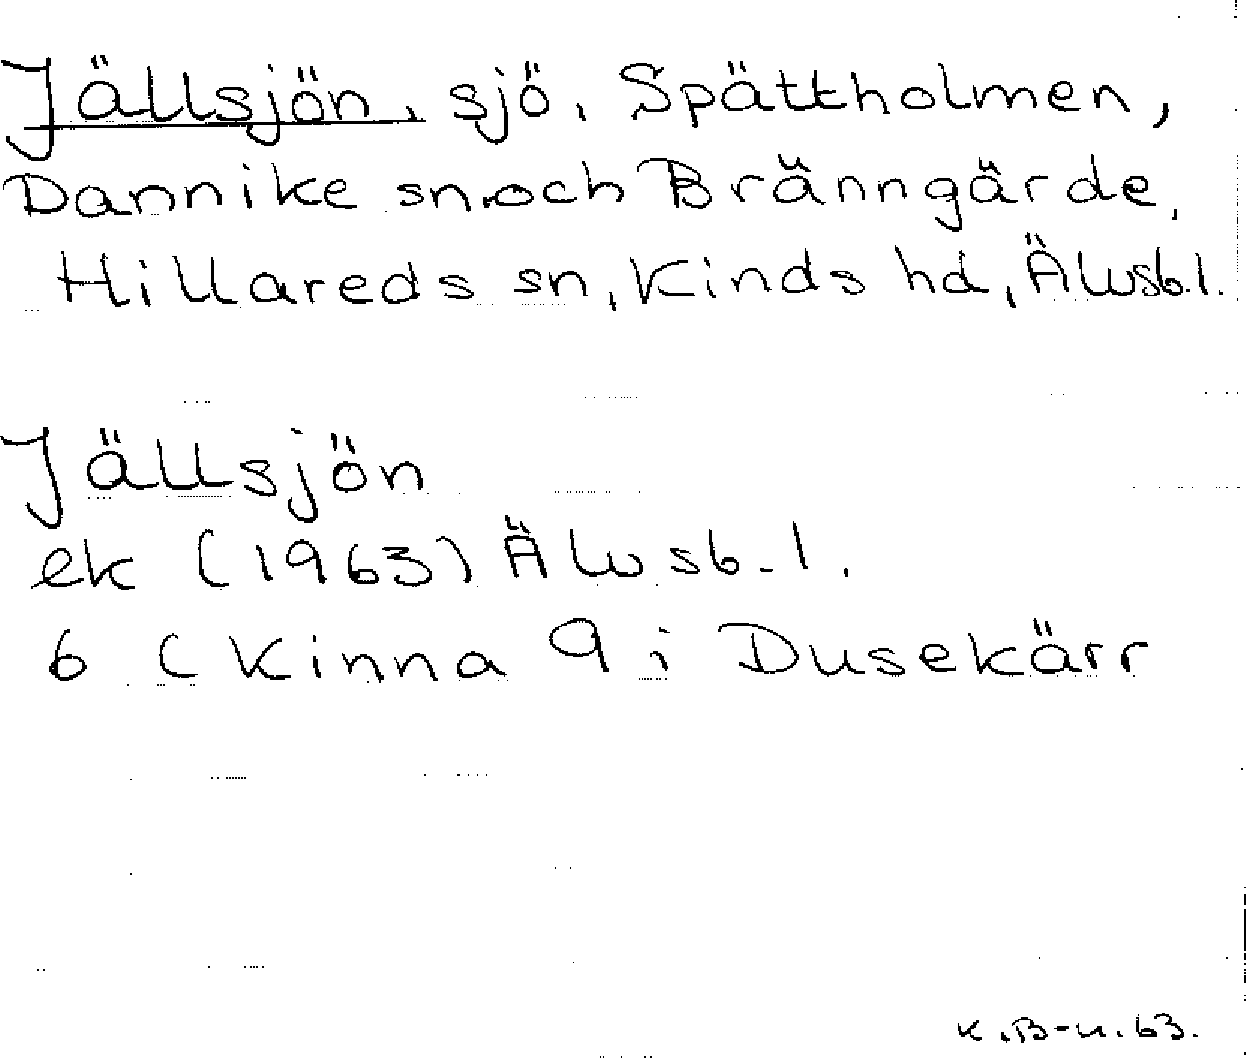 Jällsjön, sjö, Spättholmen,
Dannike sn.och Bränngärde,
Hillareds sn, Kinds hd, Älvsb.l.
Jällsjön
ek (1963) Älvsb.l.
6 ( Kinna 9 i Dusekärr
K.B-n.63.